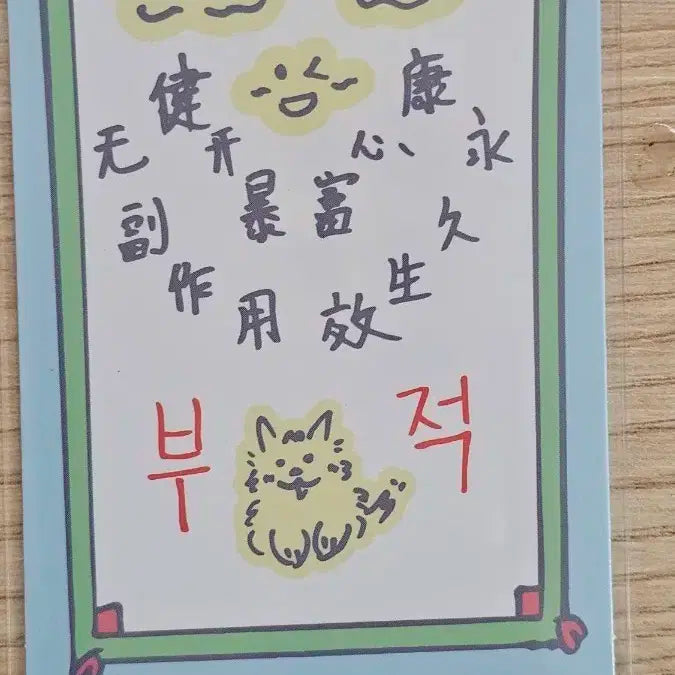 健康
开心
暴富
无副作用
永久生效
부적